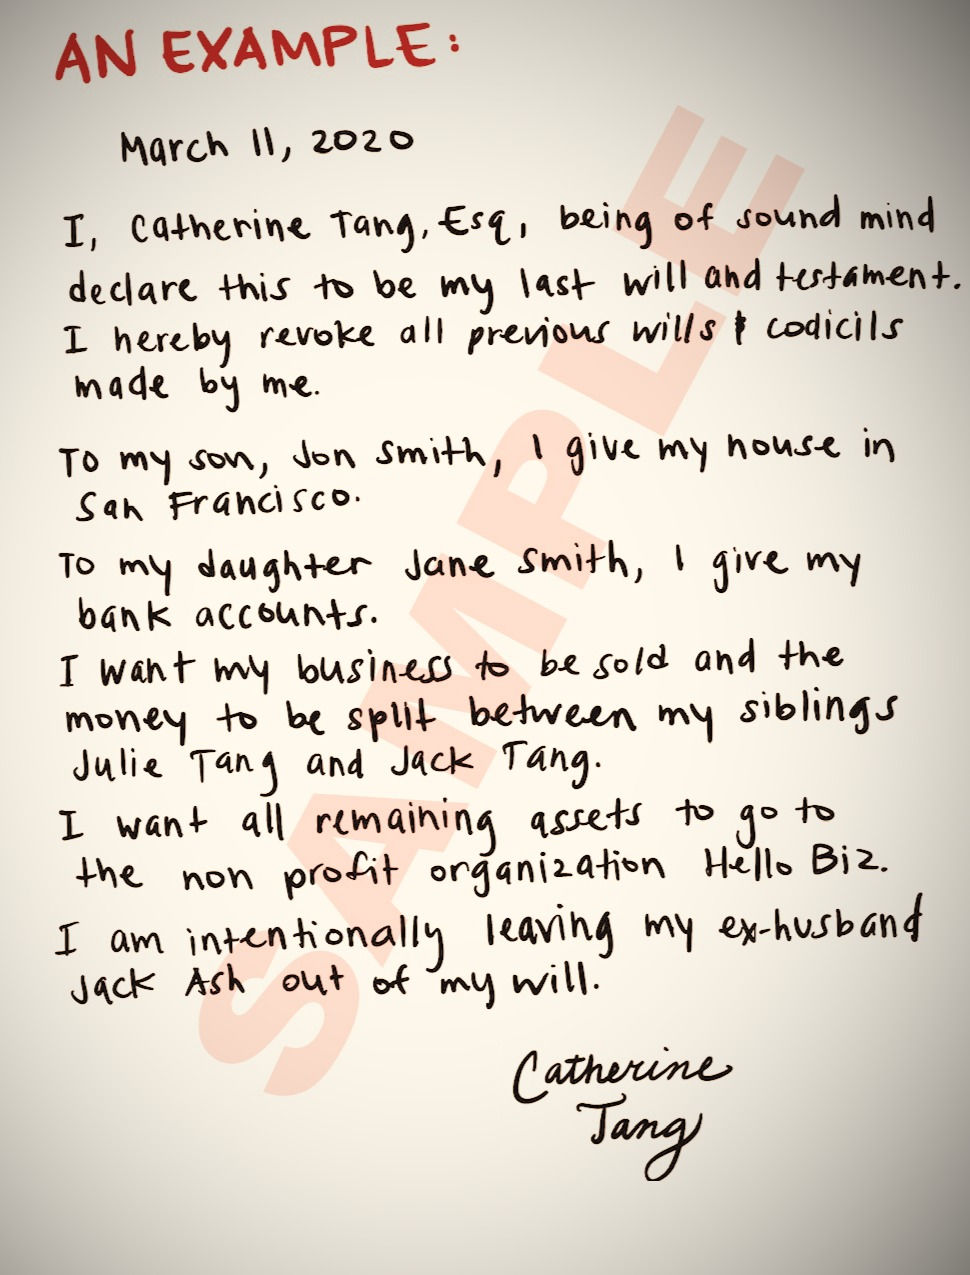 AN EXAMPLE:
March 11, 2020
I, Catherine Tang, Esq, being of sound mind
declare this to be my last will and testament.
I hereby revoke all previous wills & codicils
made by me.
To my son, Jon Smith, I give my house in
San Francisco.
To my daughter Jane Smith, I give my
bank accounts.
I want my business to be sold and the
money to be split between my siblings
Julie Tang and Jack Tang.
I want all remaining assets to go to
the non profit organization Hello Biz.
I am intentionally leaving my ex-husband
Jack Ash out of my will.
Catherine
Tang
SAMPLE